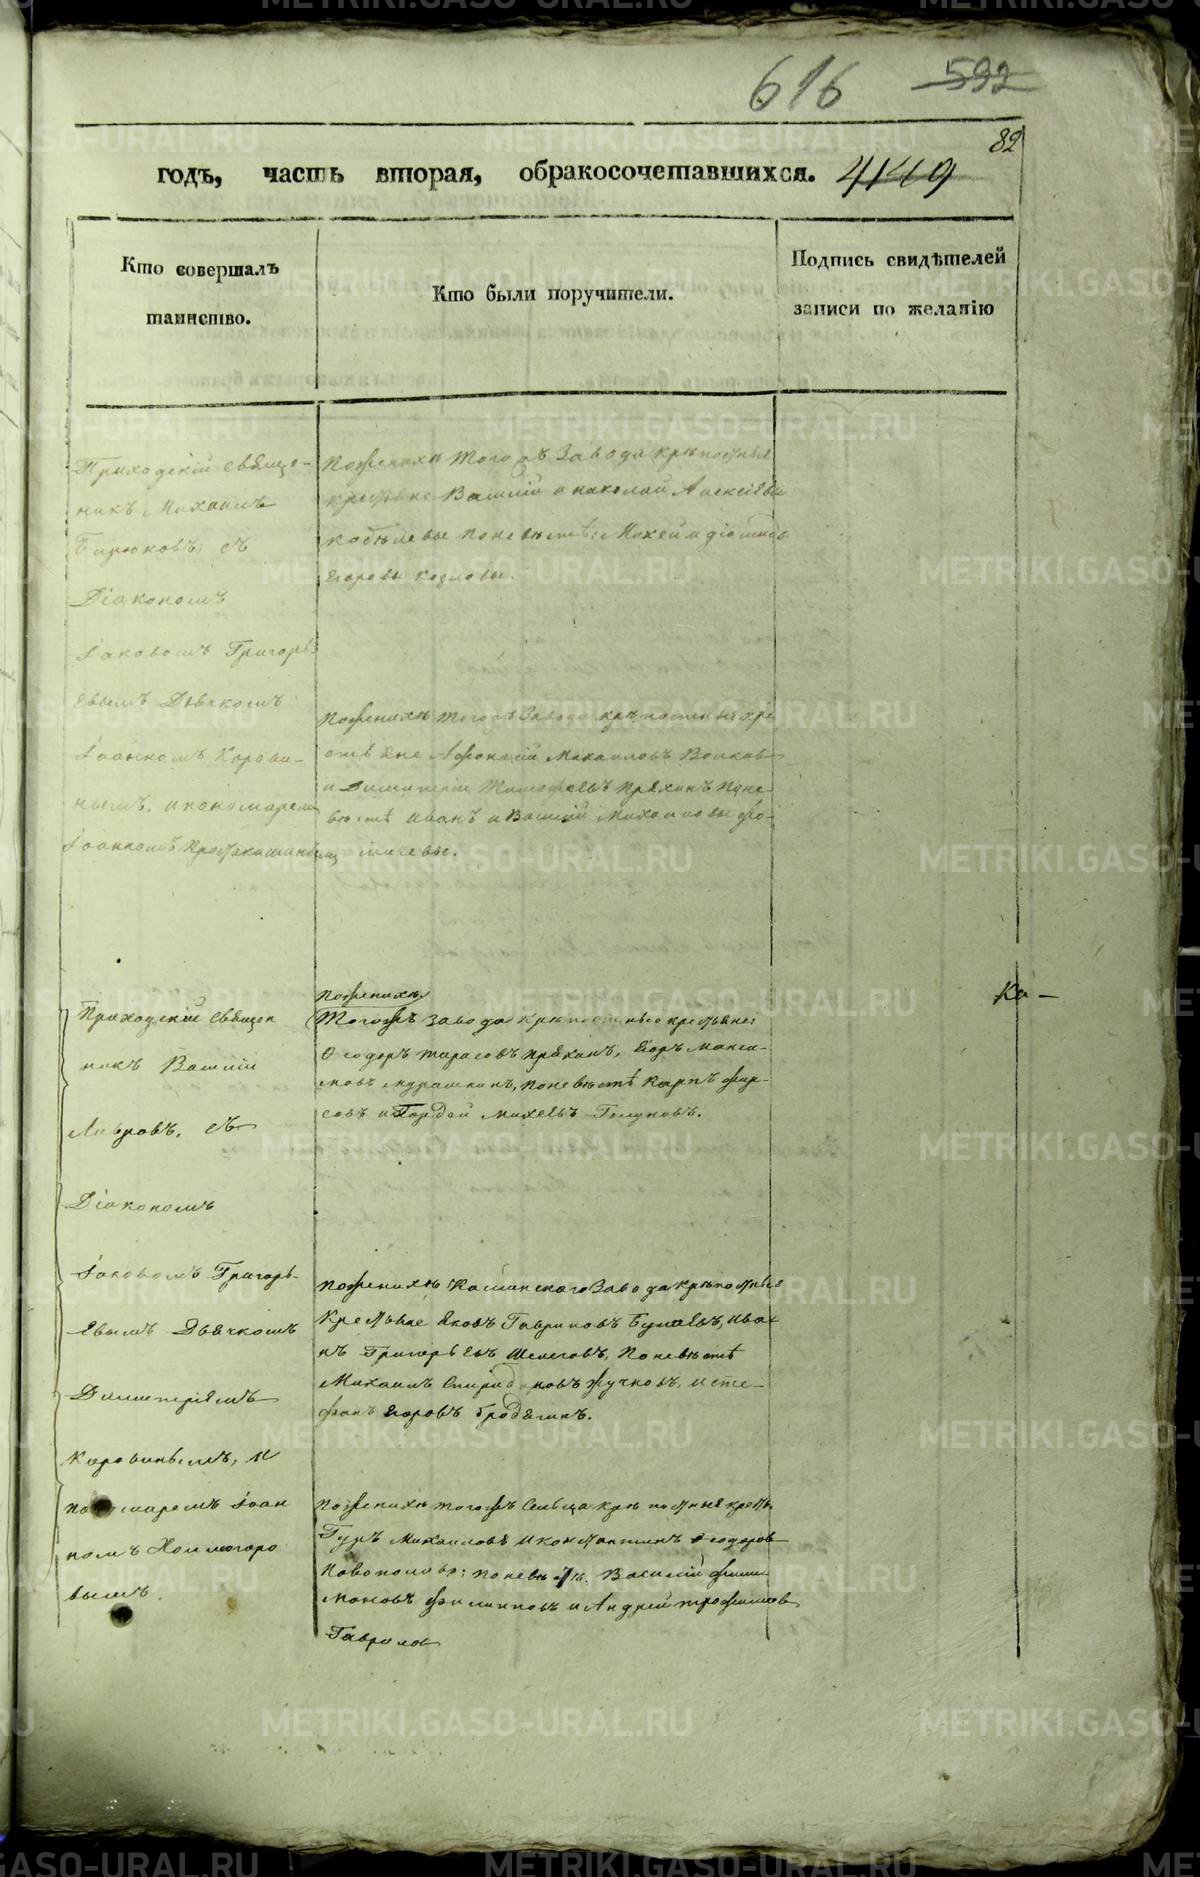 616 592
82
годъ, часть вторая, обракосочетавшихся. 4149
Кто совершалъ
таинство.
Кто были поручители.
Подпись свидѣтелей
записи по желанію
Приходскій священ-
никъ Михаилъ
Бирюковъ; съ
Діакономъ
Іаковомъ Григорь-
евымъ Дьячкомъ
Іоанномъ Корови-
нымъ, и пономаремъ
Іоанномъ
Поженихѣ тогожъ Завода крѣпостныя
крестьяне Василій и николай Алексѣевы
кобылевы поневѣстѣ; Михей и
Егоровы козловы.
Поженихѣ тогожъ Завода крѣпостныя кре-
стьяне Афонасій Михаиловъ Волковъ
и Димитрій Тимофѣевъ Пряхинъ Поне-
вѣстѣ Иванъ и Василій Михаиловы
Приходскій Священ
никъ Василій
Лавровъ, съ
Діакономъ
Іаковомъ Григорь-
евымъ Дьячкомъ
Димитріемъ
Коровинымъ, и
пономаремъ Іоан
номъ Холмогоро
вымъ.
Поженихѣ
Тогожъ завода крѣпостные крестьяне;
Ѳеодоръ тарасовъ пряхинъ, Егоръ Макси-
мовъ, поневѣстѣ Карпъ фир-
совъ и Гордей михеевъ Голуновъ.
Ка-
Поженихѣ Каслинскаго Завода крѣпостныя
Крестьяне Яковъ Гавриловъ, Ива-
нъ Григорьевъ Шелеговъ, Поневѣстѣ
Михаилъ Спиридоновъ Жучковъ, и сте-
фанъ Егоровъ бродягинъ.
Поженихѣ тогожъ Сельца крѣпостныя крест.
Гуръ Михаиловъ и константинъ Ѳеодоровъ
поневѣстѣ, Василій фили
моновъ филиповъ и Андрей трофимовъ
Гавриловъ
METRIKI.GASO-URAL.RU